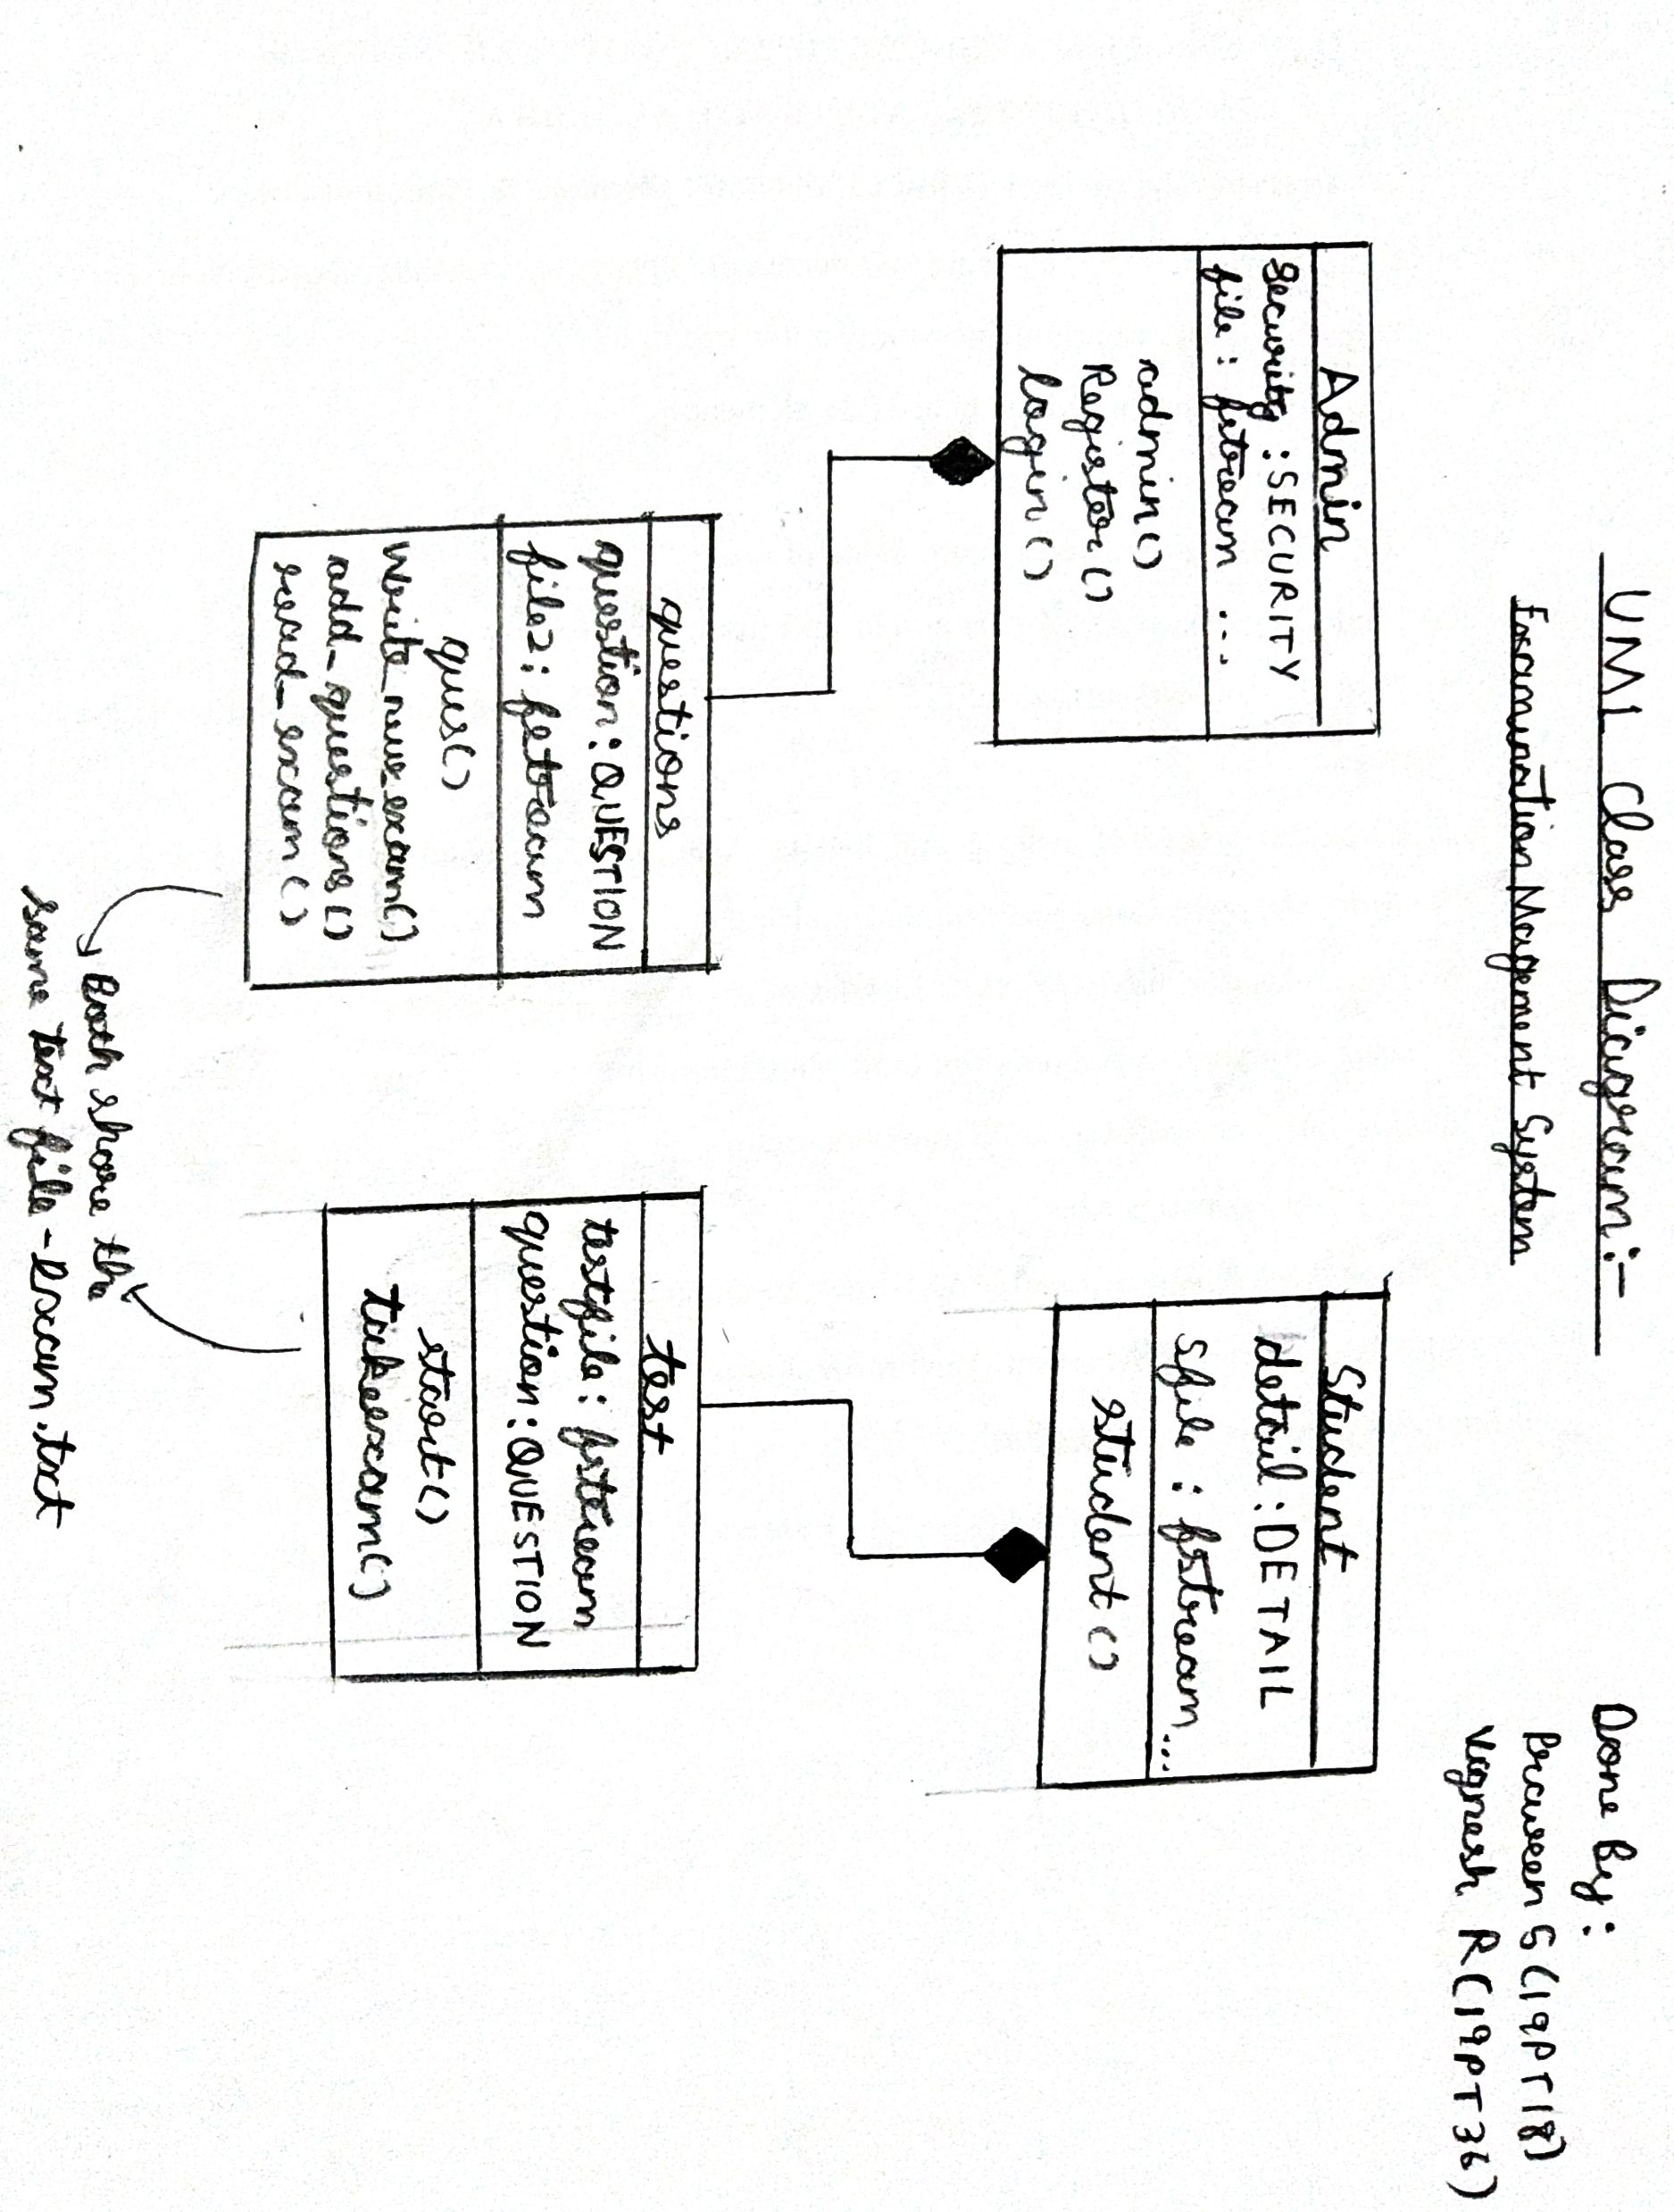 UML Class Diagram:-
Examination Magement System
Done By:
Praveen S (19PT18)
Vignesh R (19PT36)
Admin
Security : SECURITY
file : fstream ...
admin()
Register()
login()
Student
detail : DETAIL
sfile : fstream ...
student()
questions
question : QUESTION
file2 : fstream
ques()
write_new_exam()
add_questions()
read_exam()
test
testfile : fstream
question : QUESTION
start()
takeexam()
Both share the
same text file - Exam.txt